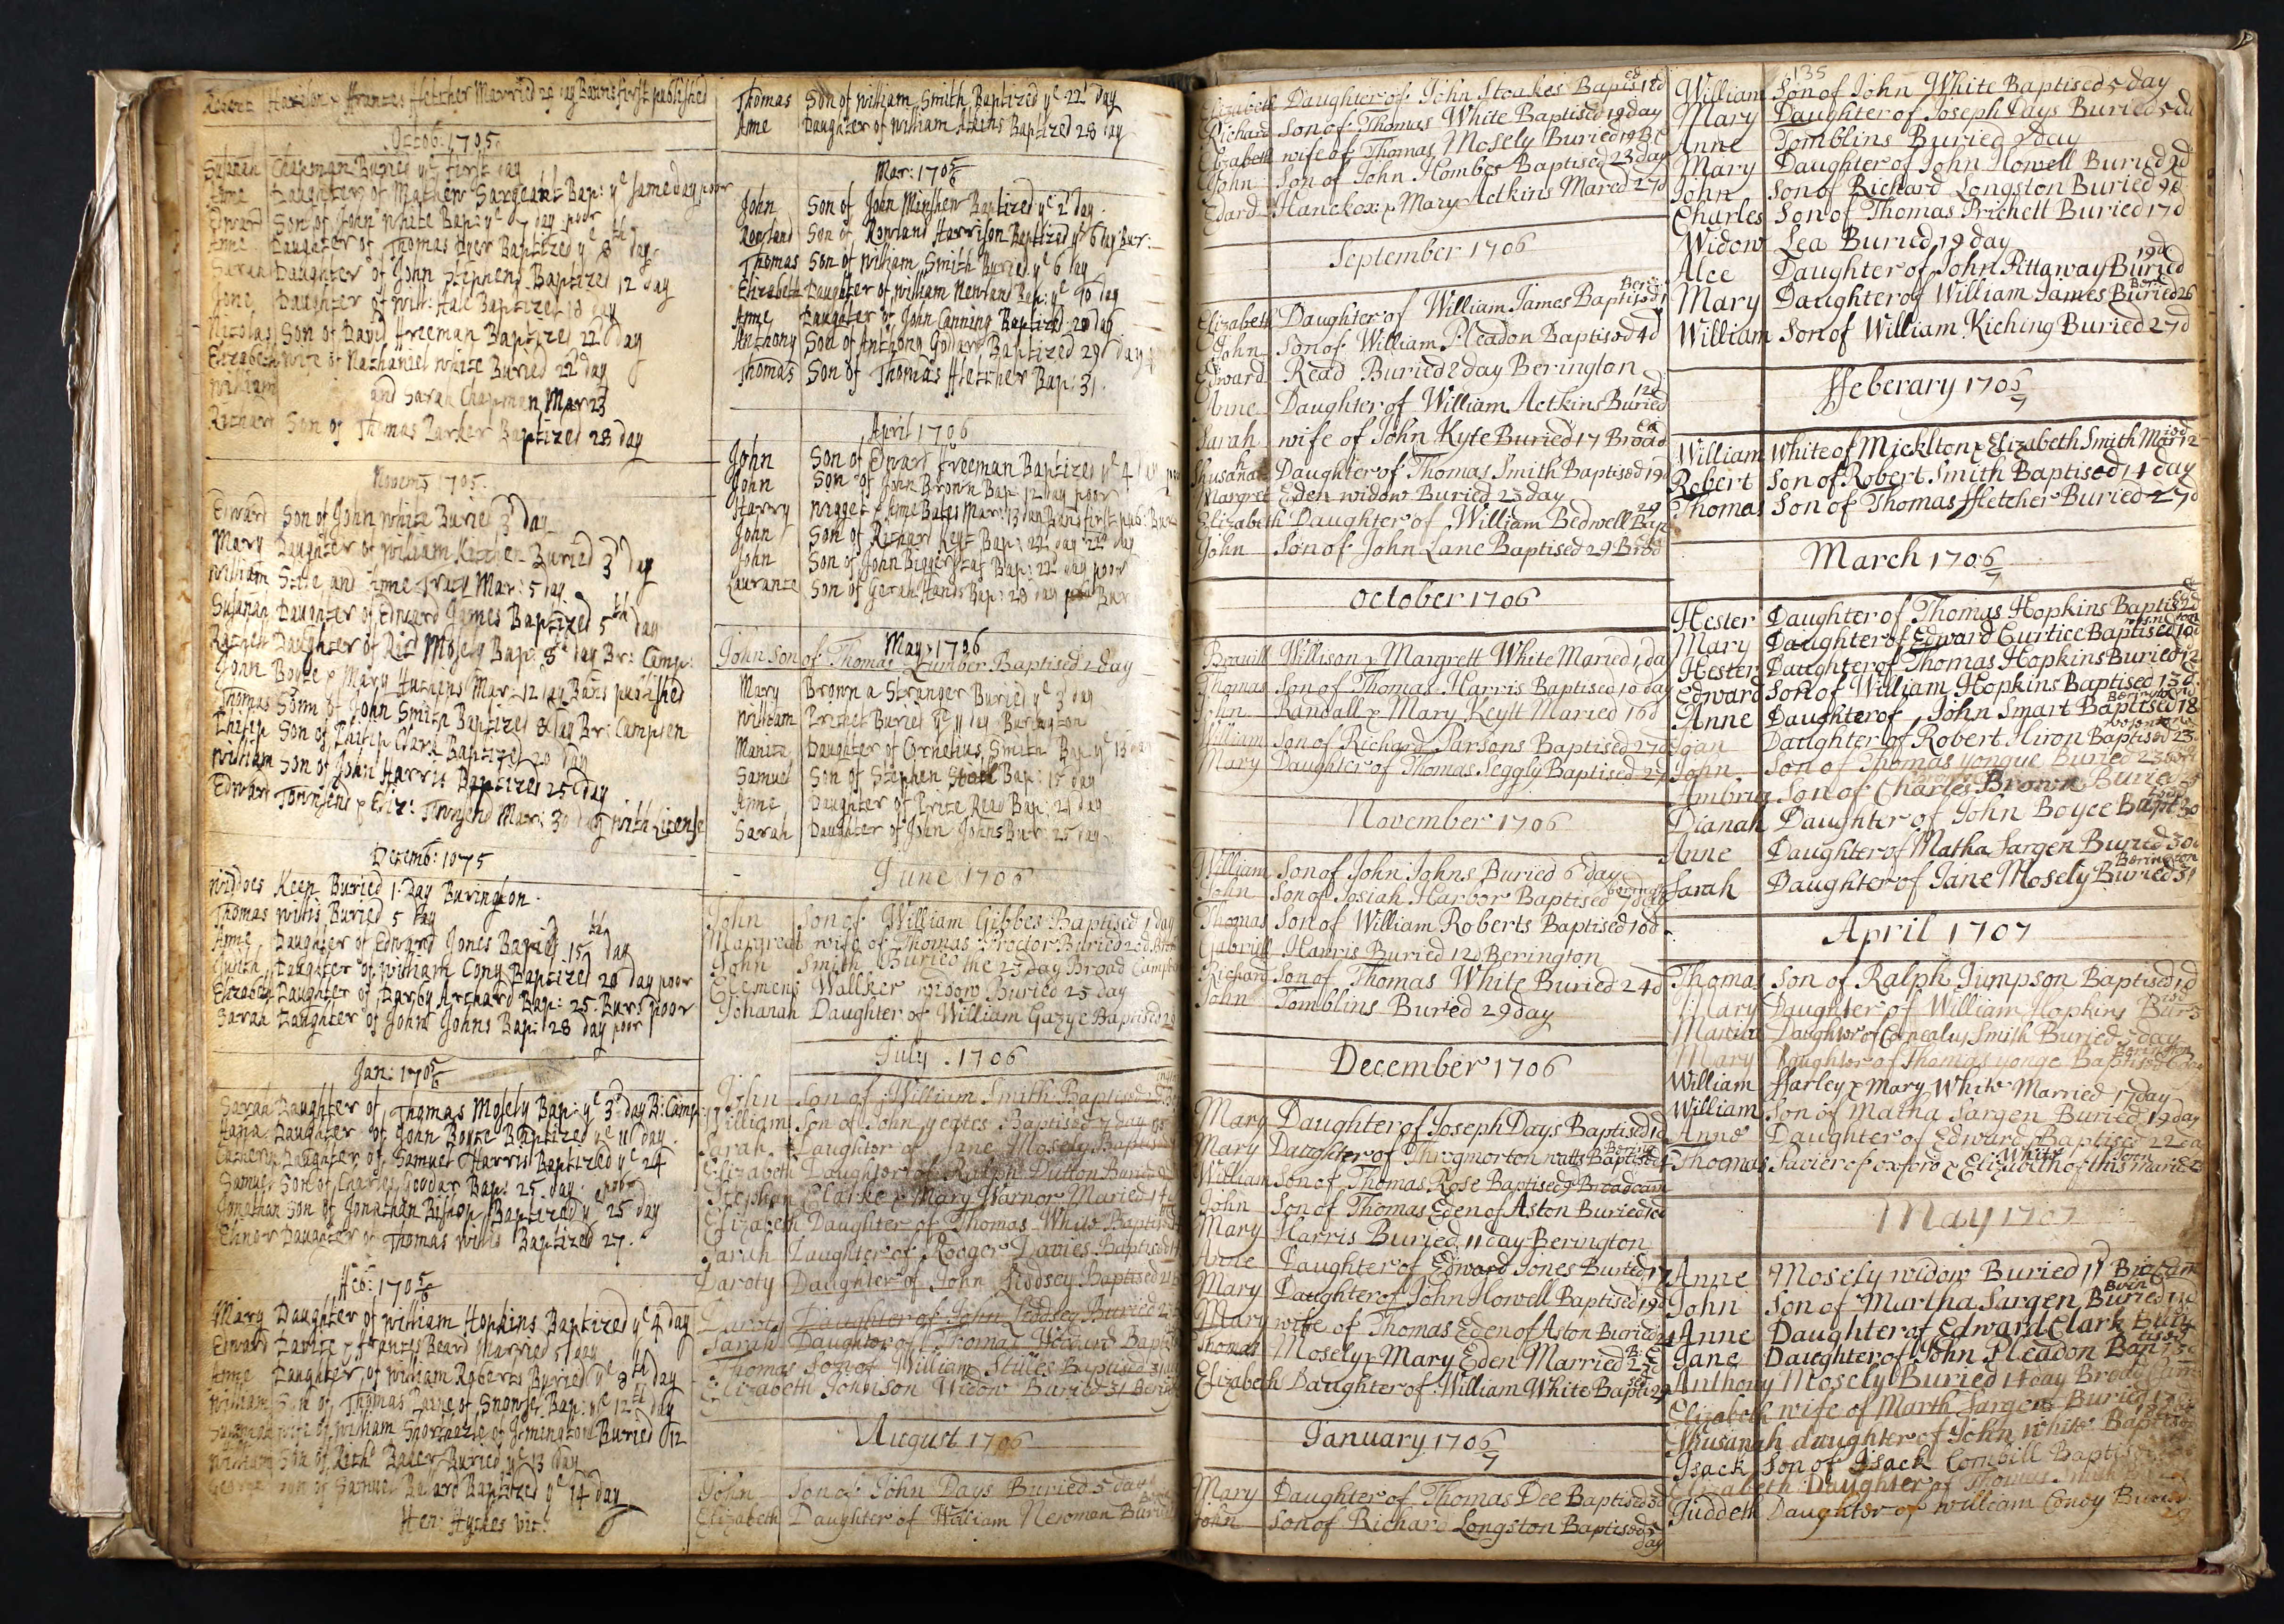 Robert Harison & Frances Fletcher Married 29 day Banns first published
Octob: 1705
Susanah Chapman Buried ye first day
Anne Daughter of Mathew Sargeant Bap: ye same day poor
Edward Son of John White Bap: ye 7 day poor
Anne Daughter of Thomas Hyer Baptized ye 8th day
Sarah Daughter of John Stephens Baptized 12 day
Jone Daughter of Will: Hall Baptized 18 day
Nicolas Son of David Freeman Baptized 22 day
Elizabeth wife of Nathaniel White Buried 22 day
William and Sarah Chapman Mar 23
Richard Son of Thomas Parker Baptized 28 day
Novemb 1705
Edward Son of John White Buried 3d day
Mary Daughter of William Kitchen Buried 3d day
William State and Anne Tracy Mar: 5 day
Susanah Daughter of Edward James Baptized 5th day
Rachell Daughter of Rid Mosely Bap: 8 day Br: Camp:
John Boyce & Mary Huchens Mar: 12 day Bans published
Thomas Sonn of John Smith Baptized 8 day Br: Campden
Philip Son of Philip Clark Baptized 20 day
William Son of John Harris Baptized 25 day
Edward Townsend & Eliz: Townsend Mar: 30 day with License
Decemb: 1075
Widdoes Keen Buried 1 Day Burington
Thomas Willis Buried 5 day
Anne Daughter of Edward Jones Baptized 15th day
Judith Daughter of William Cony Baptized 20 day poor
Elizabeth Daughter of Darby Archard Bap: 25 Burs poor
Sarah Daughter of John Johns Bap: 28 day poor
Jan: 1705/6
Sarah Daughter of Thomas Mosely Bap: ye 3d day B: Camp:
Hana Daughter of John Boyce Baptized ye 11 day
Cathern Daughter of Samuel Harris Baptized ye 24
Samuel Son of Charles Goodar Bap: 25 day poor
Jonathan Son of Jonathan Bishop Baptized ye 25 day
Elinor Daughter of Thomas Willis Baptized 27
Feb: 1705/6
Mary Daughter of William Hopkins Baptized ye 4 day
Edward Davice & Frances Beard Married 5 day
Anne Daughter of William Roberts Buried ye 8th day
William Son of Thomas Paine of Snowse Bap: ye 12th day
wife of William of Ilmington Buried 12
William Son of Rich: Baker Buried ye 13 day
George Son of Samuel Ballard Baptized ye 14 day
Hen: Hyckes Vic:
Thomas Son of William Smith Baptized ye 22 day
Anne Daughter of William Atkins Baptized 28 day
Mar: 1705/6
John Son of John Minshew Baptized ye 2 day
Rowland Son of Rowland Harrison Baptized ye 6 day Bur:
Thomas Son of William Smith Buried ye 6 day
Elizabeth Daughter of William Newland Bap: ye 10 day
Anne Daughter of John Canning Baptized 20 day
Anthony Son of Anthony Godard Baptized 29 day
Thomas Son of Thomas Fletcher Bap: 31
April 1706
John Son of Edward Freeman Baptized ye 4 day poor
John Son of John Brown Bap: 12 day poor
Harry Wigget & Jane Bates Mar: 13 day Bans first pub: Bur
John Son of Richard Keyt Bap: 22 day 22 day
John Son of John Biggerstaf Bap: 22 day poor
Laurance Son of Gerah Hands Bap: 28 day Bur
May 1706
John Son of Thomas Lumber Baptised 2 day
Mary Brown a Stranger Buried ye 3 day
William Prichet Buried ye 11 day Burington
Daughter of Cornelius Smith Bap: ye 13 day
Samuel Son of Stephen Bap: 17 day
Anne Daughter of Price Read Bap: 21 day
Sarah Daughter of John Johns Bur: 25 day
June 1706
John Son of William Gibbes Baptised 1 day
Margreat wife of Thomas Proctor Buried 22d
John Smith Buried the 23 day Broad Campden
Clemens Wallker widow Buried 25 day
Johanah Daughter of William Gazye Baptised 29
July 1706
John Son of William Smith Baptised 2d
William Son of John yeates Baptised 7 day
Sarah Daughter of Jane Mosely Baptised
Elizabeth Daughter of Ralph Dutton Buried
Stephen Clarke & Mary Warner Maried 14
Elizabeth Daughter of Thomas White Baptised
Sarah Daughter of Rodger Davies Baptised
Daroty Daughter of John Lidsey Baptised
Daroty Daughter of John Liddsey Buried
Sarah Daughter of Thomas Baptised
Thomas Son of William Stiles Baptised 31
Elizabeth Johnson Widow Buried 31
August 1706
John Son of John Days Buried 5 day
Elizabeth Daughter of William Newman Buried
Elizabeth Daughter of John Stoakes Baptised 18d
Richard Son of Thomas White Baptised 19 day
Elizabeth wife of Thomas Mosely Buried 19 B: C
John Son of John Hombes Baptised 23 day
Edard Hanckox & Mary Aetkins Mared 27d
September 1706
Elizabeth Daughter of William James Baptised 1 Bering
John Son of William Pleadon Baptised 4d
Edward Read Buried 2 day Berington
Anne Daughter of William Aetkins Buried 12d
Sarah wife of John Kyte Buried 17 Broad Ca
Shusanah Daughter of Thomas Smith Baptised 19d
Margret Eden widow Buried 23 day
Elizabeth Daughter of William Bedwell Bap 29
John Son of John Lane Baptised 29 Brod
October 1706
Willison & Margrett White Maried 1 day
Thomas Son of Thomas Harris Baptised 10 day
John Randall & Mary Keytt Maried 16d
William Son of Richard Parsons Baptised 27d
Mary Daughter of Thomas Seggly Baptised 29
November 1706
William Son of John Johns Buried 6 day
John Son of Josiah Harbor Baptised 7 day Bering
Thomas Son of William Roberts Baptised 10d
Gabriell Harris Buried 12d Berington
Richard Son of Thomas White Buried 24d
John Tomblins Buried 29 day
December 1706
Mary Daughter of Joseph Days Baptised 1d
Mary Daughter of Throgmorton watts Baptised Bering
William Son of Thomas Rose Baptised 9 Broadcam
John Son of Thomas Eden of Aston Buried 10d
Mary Harris Buried 11 day Berington
Anne Daughter of Edward Jones Buried 17
Mary Daughter of John Howell Baptised 19d
Mary wife of Thomas Eden of Aston Buried 24
Thomas Mosely & Mary Eden Married 25d B: C
Elizabeth Daughter of William White Baptised 29
January 1706/7
Mary Daughter of Thomas Dee Baptised 3d
John Son of Richard Longston Baptised 5 day
135
William Son of John White Baptised 5 day
Mary Daughter of Joseph Days Buried 5 da
Anne Tomblins Buried 9 day
Mary Daughter of John Howell Buried 9d
John Son of Richard Longston Buried 9d
Charles Son of Thomas Prichett Buried 17d
Widow Lea Buried 19 day
Alce Daughter of John Pittaway Buried 19d
Mary Daughter of William James Buried 26 Beri
William Son of William Kiching Buried 27d
Ffeberary 1706/7
William White of Micklton & Elizabeth Smith Maried 12
Robert Son of Robert Smith Baptised 14 day
Thomas Son of Thomas Ffletcher Buried 27d
March 1706/7
Hester Daughter of Thomas Hopkins Baptised 2d
Mary Daughter of Edward Curtice Baptised 10d
Hester Daughter of Thomas Hopkins Buried 12
Edward Son of William Hopkins Baptised 13d
Anne Daughter of John Smart Baptised 18 Berington
Joan Daughter of Robert Hiron Baptised 23
John Son of Thomas yongue Buried 23
Ambrig Son of Charles Brown Buried 25
Dianah Daughter of John Boyce Bapt 30
Anne Daughter of Matha Sargen Buried 30d
Sarah Daughter of Jane Mosely Buried 31 Berington
April 1707
Thomas Son of Ralph Jumpson Baptised 1d
Mary Daughter of William Hopkins Bur 5
Martha Daughter of Cornealus Smith Buried 5 day
Mary Daughter of Thomas yonge Baptised 6 day Berington
William Harley & Mary White Married 17 day
William Son of Matha Sargen Buried 19 day
Anne Daughter of Edward Baptised 22 da
Thomas Savier of oxford & Elizabeth White of this town maried 23
May 1707
Anne Mosely widow Buried 11 Brodcam
John Son of Martha Sargen Buried 13d
Anne Daughter of Edward Clark
Jane Daughter of John Pleadon Baptised 13d
Anthony Mosely Buried 14 day Broad Cam
Elizabeth wife of Marth Sargen Buried 17
Shusanah daughter of John White Baptised
Isack Son of Isack Cornbill Baptised
Elizabeth Daughter of Thomas Smith
Juddeth Daughter of William Cony Buried